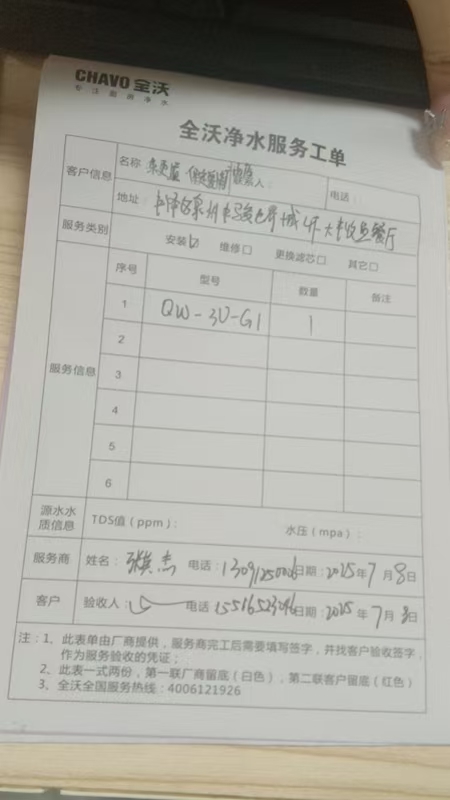 CHAVO 全沃
专注厨房净水
全沃净水服务工单
客户信息
名称: 联系人: 电话:
地址: 世界城4F大丰收鱼餐厅
服务类别 安装☑ 维修□ 更换滤芯□ 其它□
服务信息
序号 型号 数量 备注
1 QW-3U-G1 1
2
3
4
5
6
源水水质信息 TDS值(ppm): 水压(mpa):
服务商 姓名: 杰 电话: 日期: 2025年7月8日
客户 验收人: 电话 日期: 2025年7月8日
注:1、此表单由厂商提供,服务商完工后需要填写签字,并找客户验收签字,
作为服务验收的凭证;
2、此表一式两份,第一联厂商留底(白色),第二联客户留底(红色)
3、全沃全国服务热线:4006121926